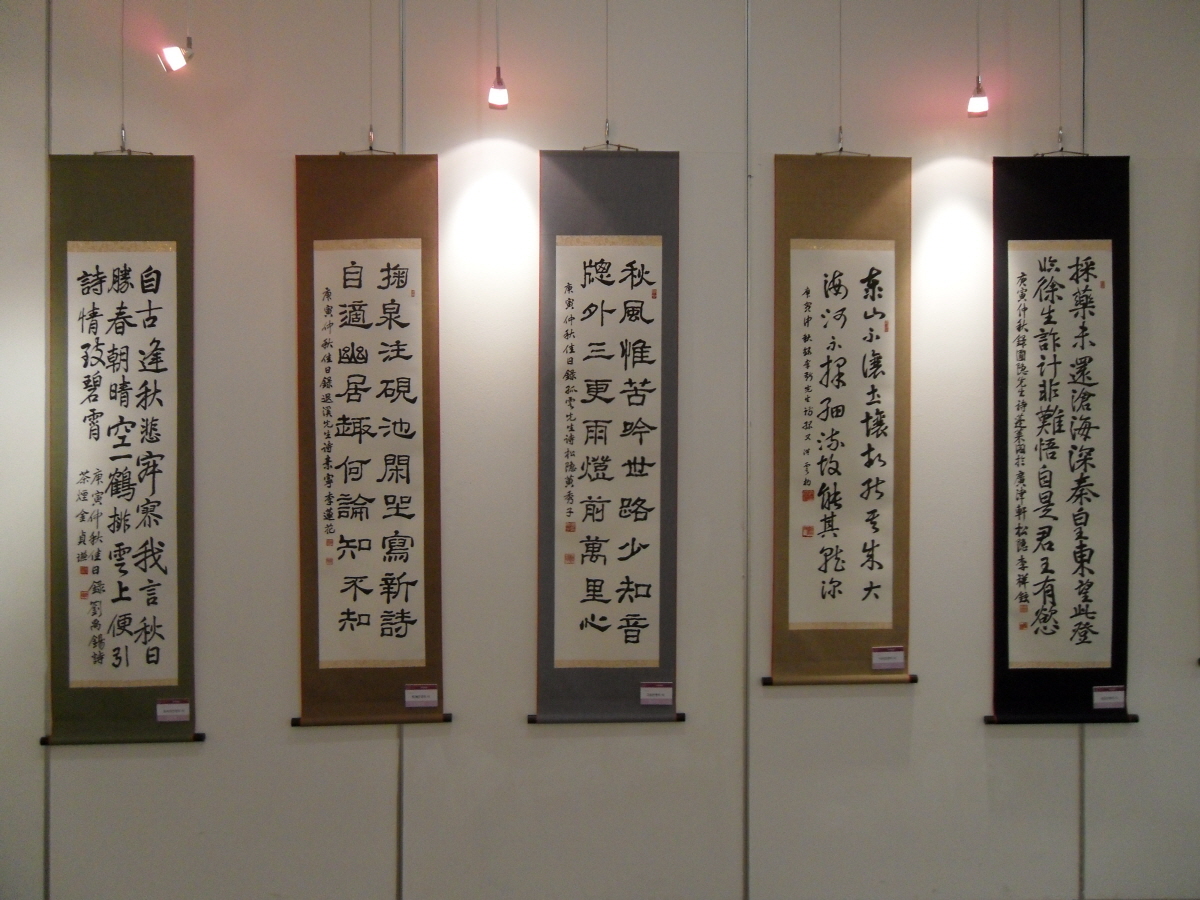 自古逢秋悲寂寥我言秋日
勝春朝晴空一鶴排雲上便引
詩情致碧霄
庚寅仲秋佳日錄劉禹錫詩
茶煙金貞
掬泉注硯池閑坐寫新詩
自適幽居趣何論知不知
庚寅仲秋佳日錄退溪先生詩素亭李蓮花
秋風惟苦吟世路少知音
牕外三更雨燈前萬里心
庚寅仲秋佳日錄孤雲先生詩松隱黃秀子
泰山不讓土壤故能其成大
海河不擇細流故能其就深
庚寅仲秋
採藥未還滄海深秦皇東望此登
臨徐生詐計非難悟自是君王有慾心
庚寅仲秋錄圃隱先生詩蓬萊閣於廣津軒松隱李祥鉉